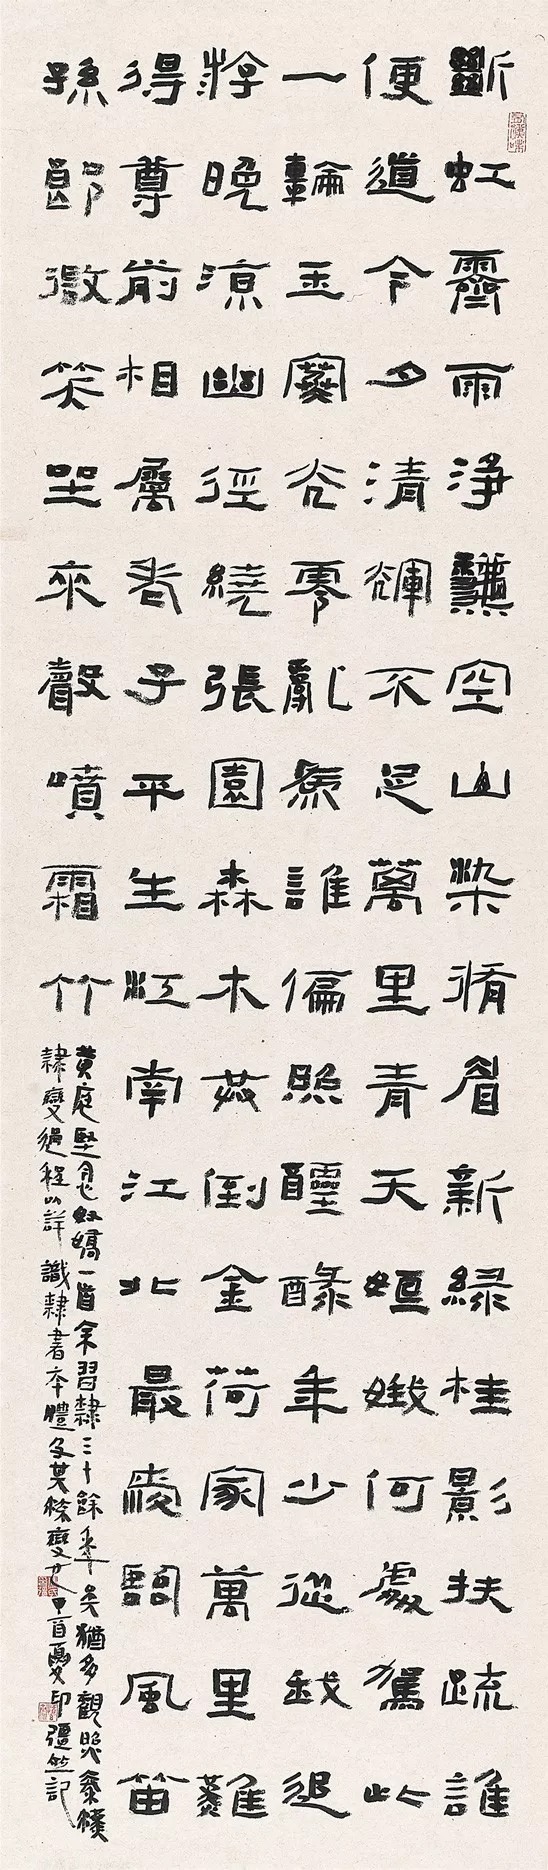 斷虹霽雨淨秋空山染脩眉新綠桂影扶疏誰
便道今夕清輝不足萬里青天姮娥何處駕此
一輪玉寒光零亂為誰偏照醽醁年少從我追
游晚涼幽徑繞張園森木共倒金荷家萬里難
得尊前相屬老子平生江南江北最愛臨風笛
孫郎微笑坐來聲噴霜竹
黃庭堅念奴嬌一首余習隸三十餘年矣猶多觀照秦漢
隸變過程以詳識隸書本體及其條變也甲首夏印彊竺記